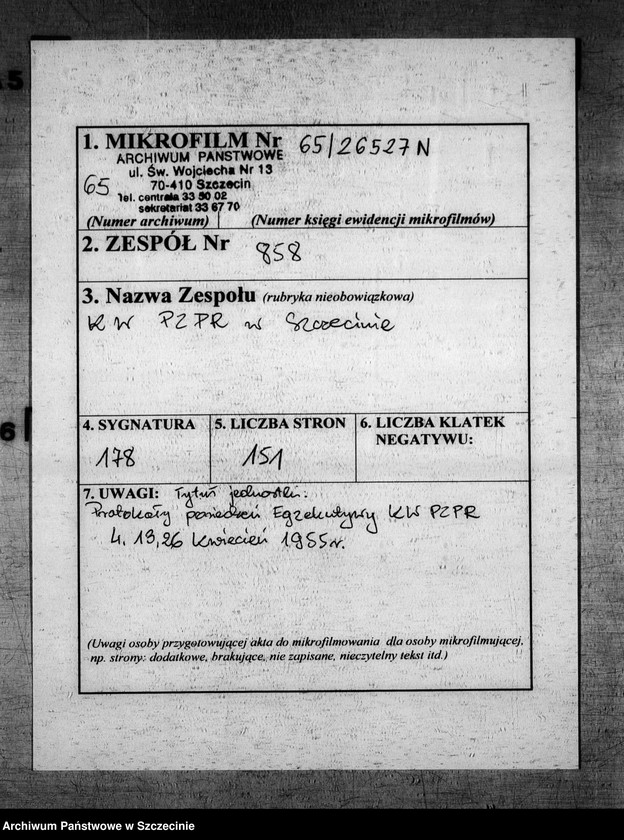 1. MIKROFILM Nr 65/26527N
ARCHIWUM PAŃSTWOWE
ul. Św. Wojciecha Nr 13
65 70-410 Szczecin
Tel. centrala 33 50 02
sekretariat 33 67 70
(Numer archiwum) (Numer księgi ewidencji mikrofilmów)
2. ZESPÓŁ Nr 858
3. Nazwa Zespołu (rubryka nieobowiązkowa)
KW PZPR w Szczecinie
4. SYGNATURA
178
5. LICZBA STRON
151
6. LICZBA KLATEK
NEGATYWU:
7. UWAGI: Tytuł jednostki:
Protokóły posiedzeń Egzekutywy KW PZPR
4, 13, 26 kwiecień 1955 r.
(Uwagi osoby przygotowującej akta do mikrofilmowania dla osoby mikrofilmującej,
np. strony: dodatkowe, brakujące, nie zapisane, nieczytelny tekst itd.)
5
6
Archiwum Państwowe w Szczecinie